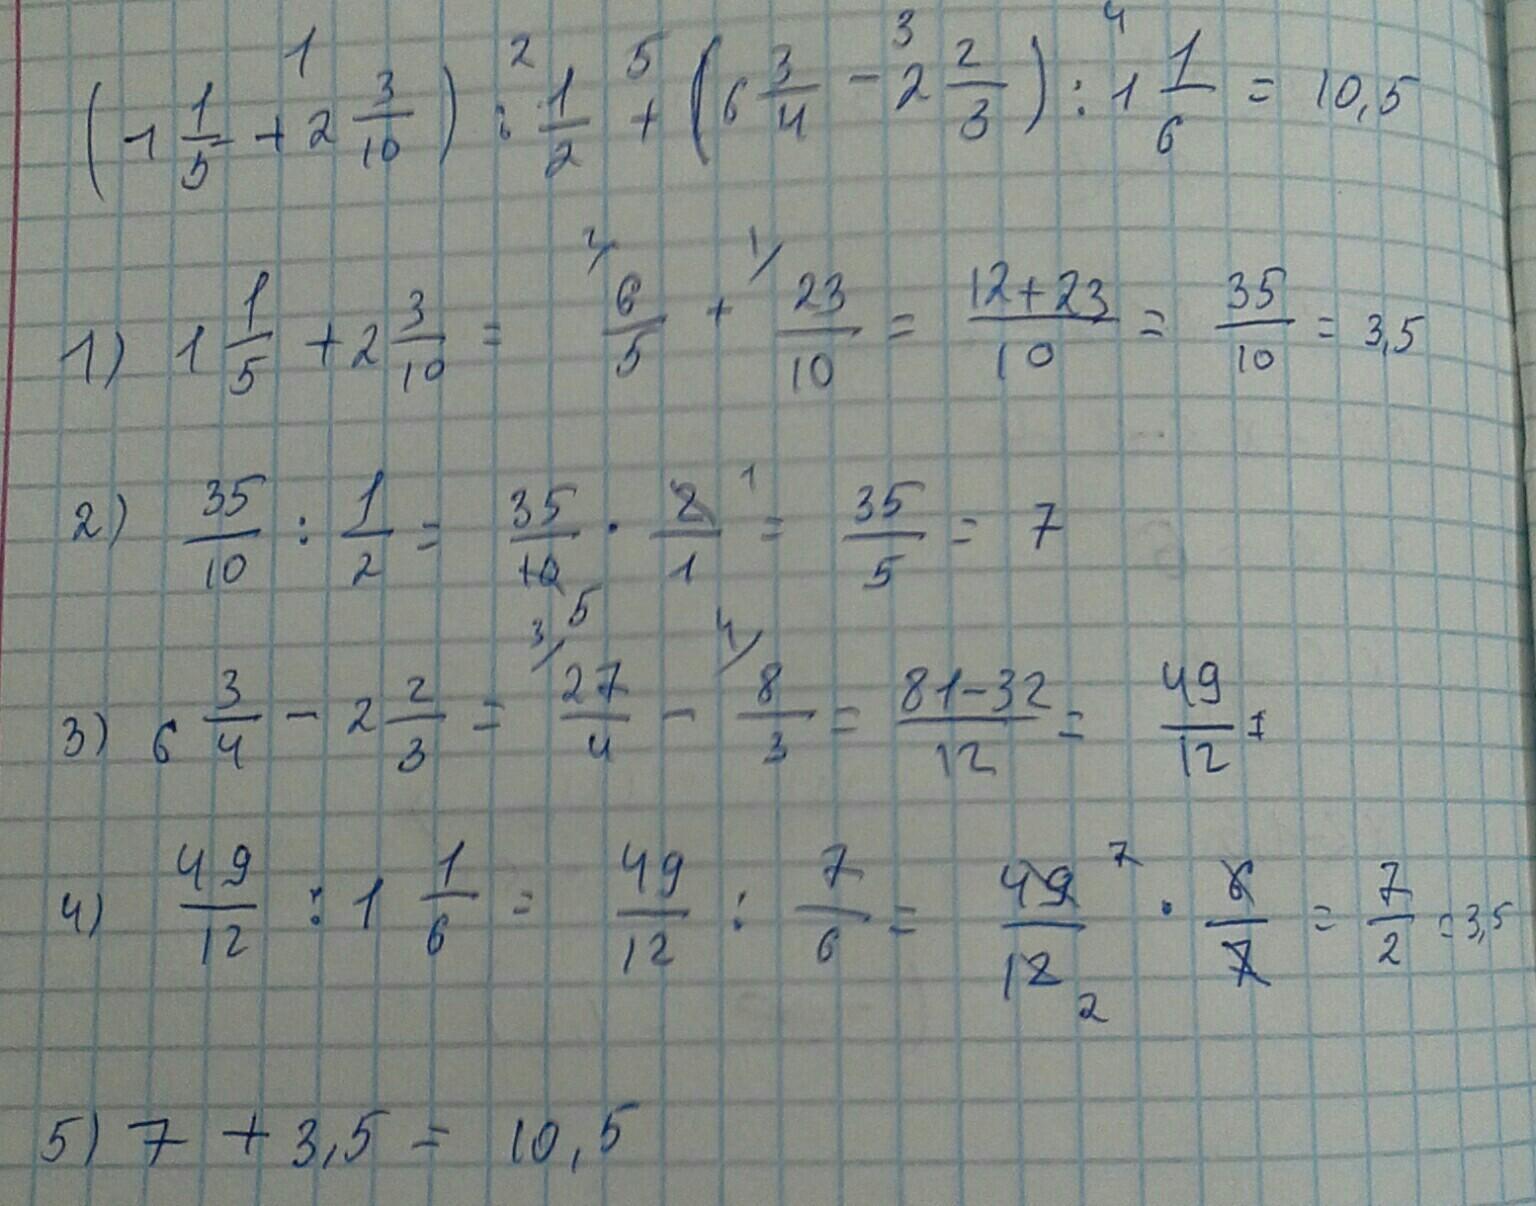 1 2 5 3 4
(1 1/5 + 2 3/10) : 1/2 + (6 3/4 - 2 2/3) : 1 1/6 = 10,5
1) 1 1/5 + 2 3/10 = 2/ 6/5 + 1/ 23/10 = 12+23/10 = 35/10 = 3,5
2) 35/10 : 1/2 = 35/10 5 · 2/1 1 = 35/5 = 7
3) 6 3/4 - 2 2/3 = 3/ 27/4 - 4/ 8/3 = 81-32/12 = 49/12
4) 49/12 : 1 1/6 = 49/12 : 7/6 = 49/12 7 2 · 6/7 = 7/2 = 3,5
5) 7 + 3,5 = 10,5